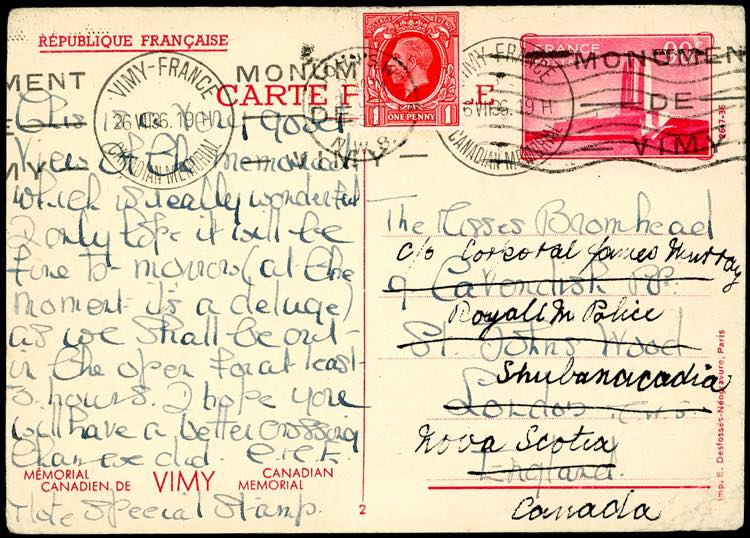 RÉPUBLIQUE FRANÇAISE
CARTE
FRANCE
ONE PENNY
1 1
VIMY-FRANCE
26 VII 36. 19 H
CANADIAN MEMORIAL
MONUMENT
DE
VIMY
VIMY-FRANCE
6 VII 36. 19 H
CANADIAN MEMORIAL
MONUMENT
DE
VIMY
N.W.8.
This is a very good
view of the memorial
which is really wonderful
I only hope it will be
fine to-morrow (at the
moment it's a deluge)
as we shall be out
in the open for at least
5 hours. I hope you
will have a better crossing
than we did.
Note Special Stamp.
MÉMORIAL
CANADIEN DE
VIMY
CANADIAN
MEMORIAL
2
The Misses Bromhead
c/o Corporal James Murray
9 Cavendish
Royall M Police
St. Johns Wood
Shubanacadia
London
Nova Scotia
England
Canada
Imp. E. Desfossés-Néogravure, Paris